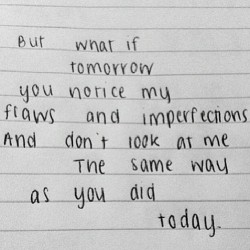 But what if
tomorrow
you notice my
flaws and imperfections
And don't look at me
The same way
as you did
today.